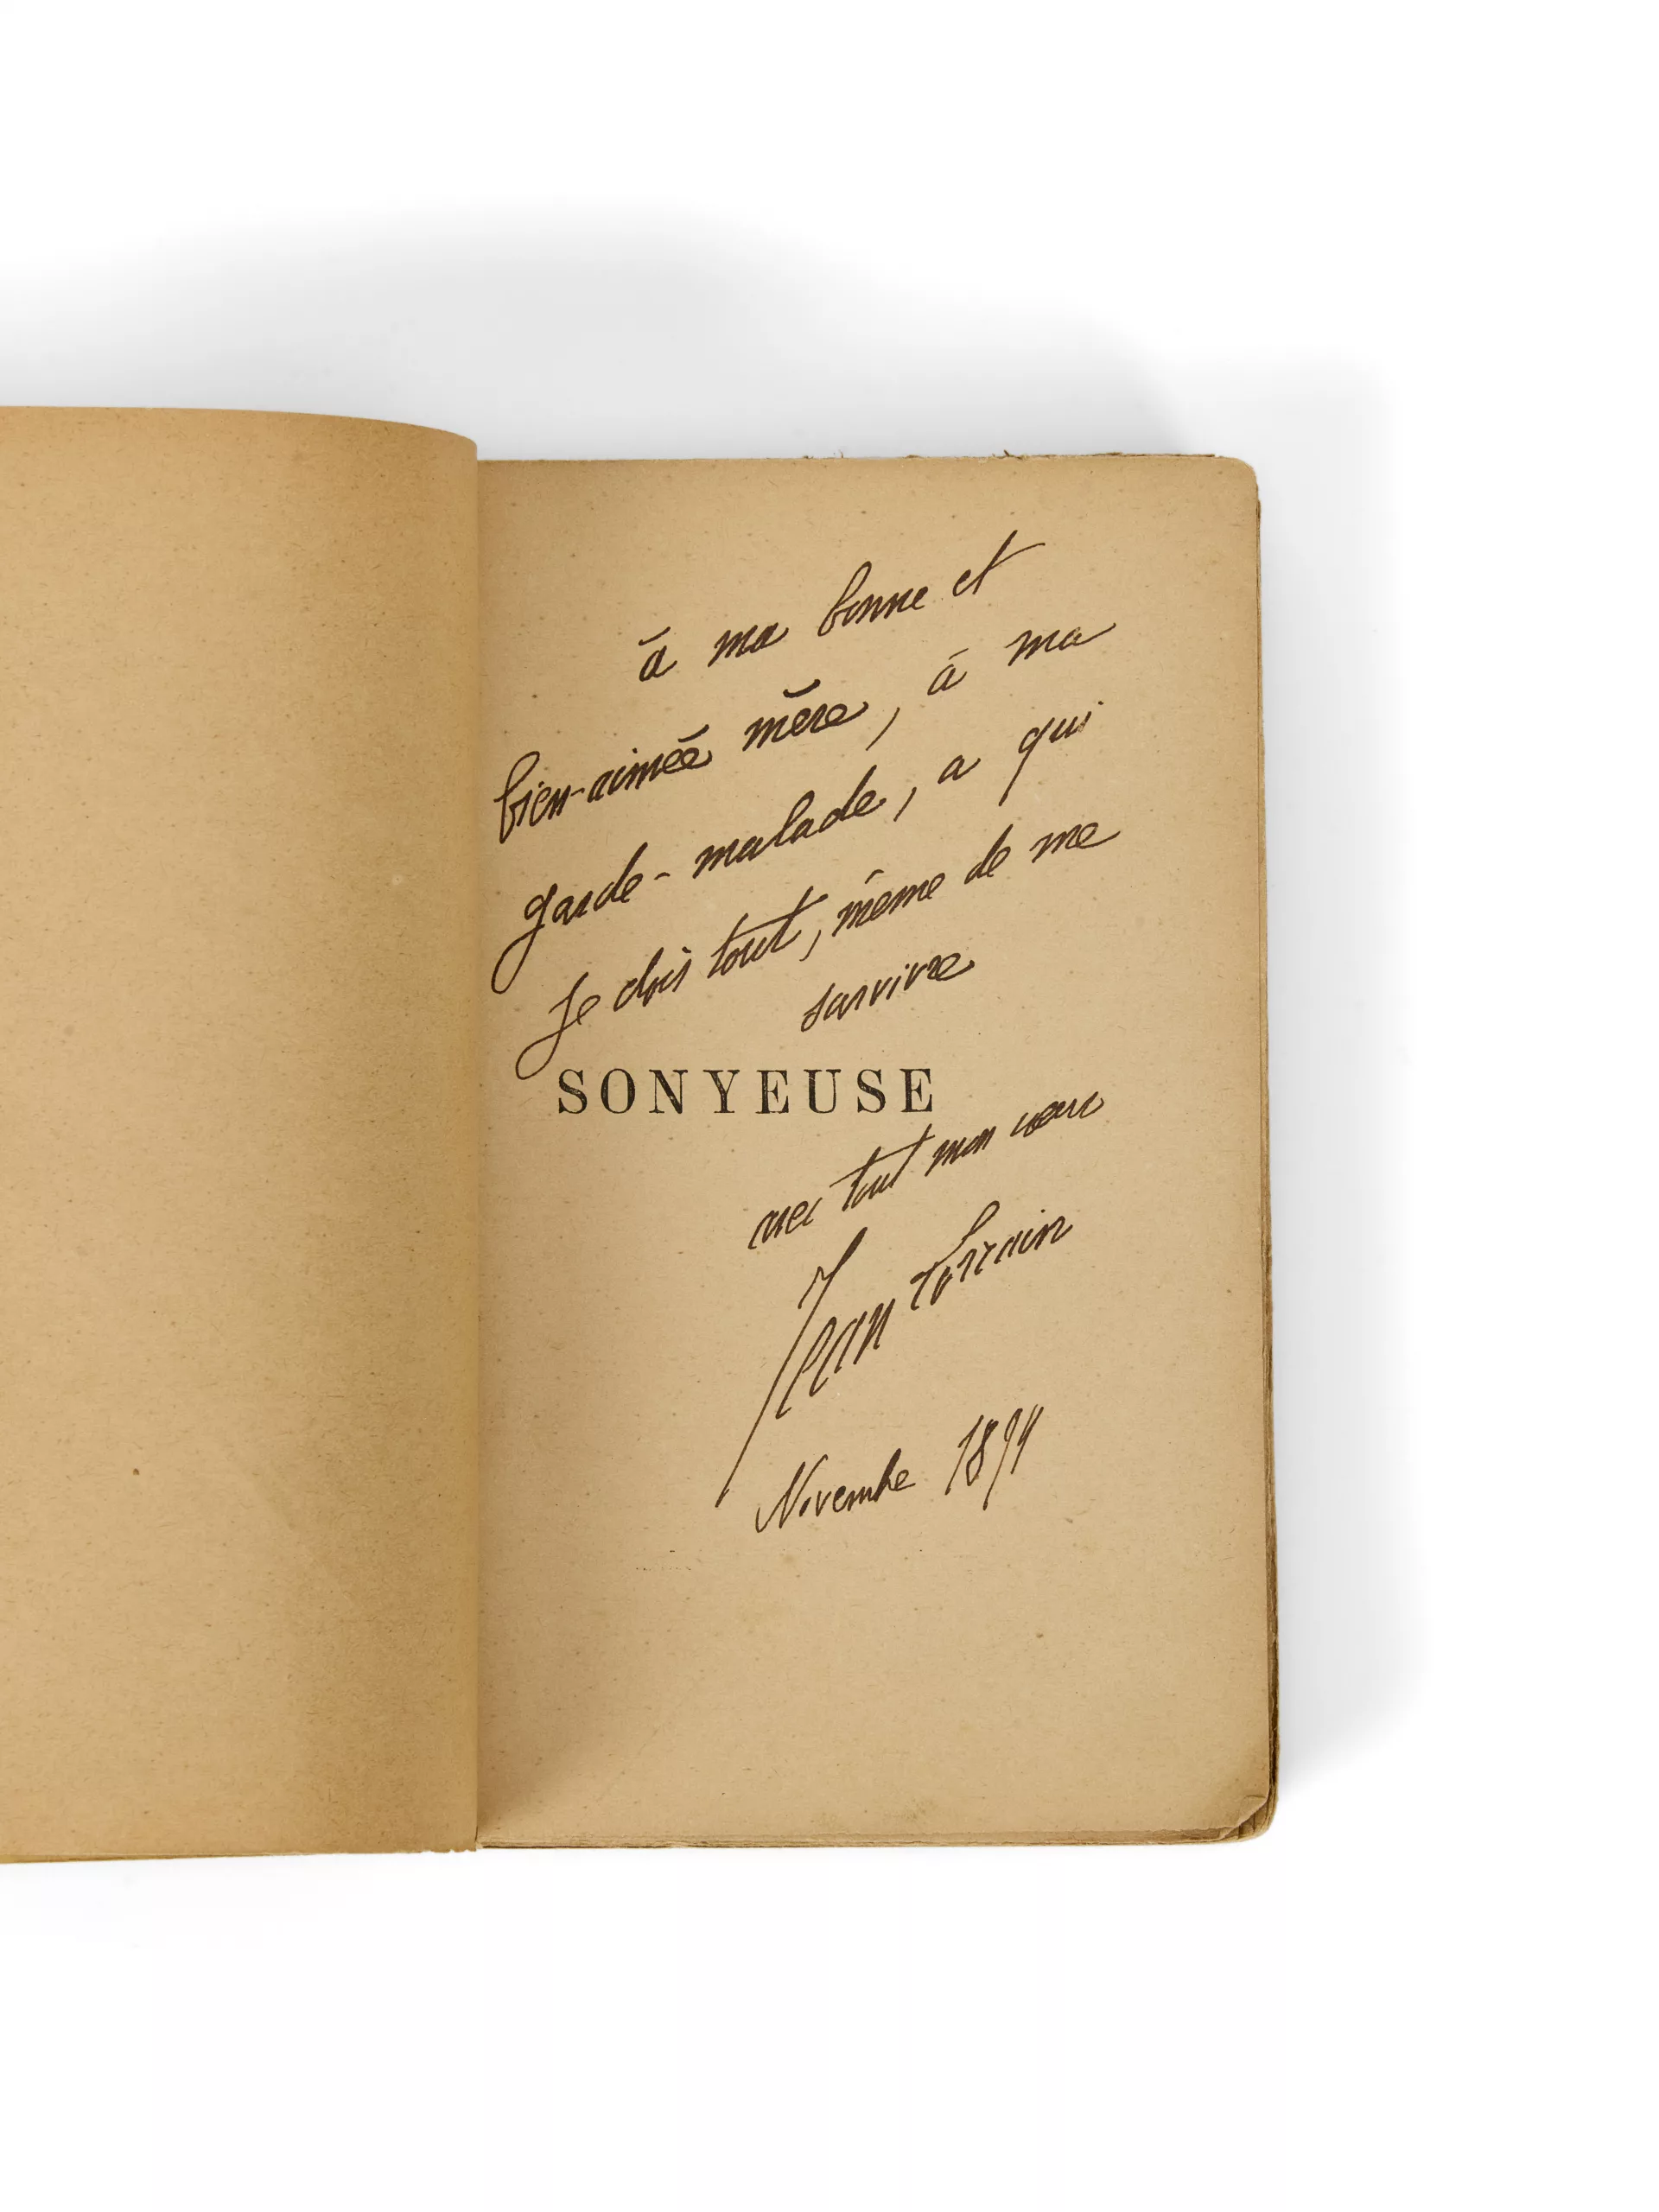 à ma bonne et
bien-aimée mère, à ma
garde-malade, a qui
je dois tout, même de me
survivre
SONYEUSE
avec tout mon cœur
Jean Lorrain
Novembre